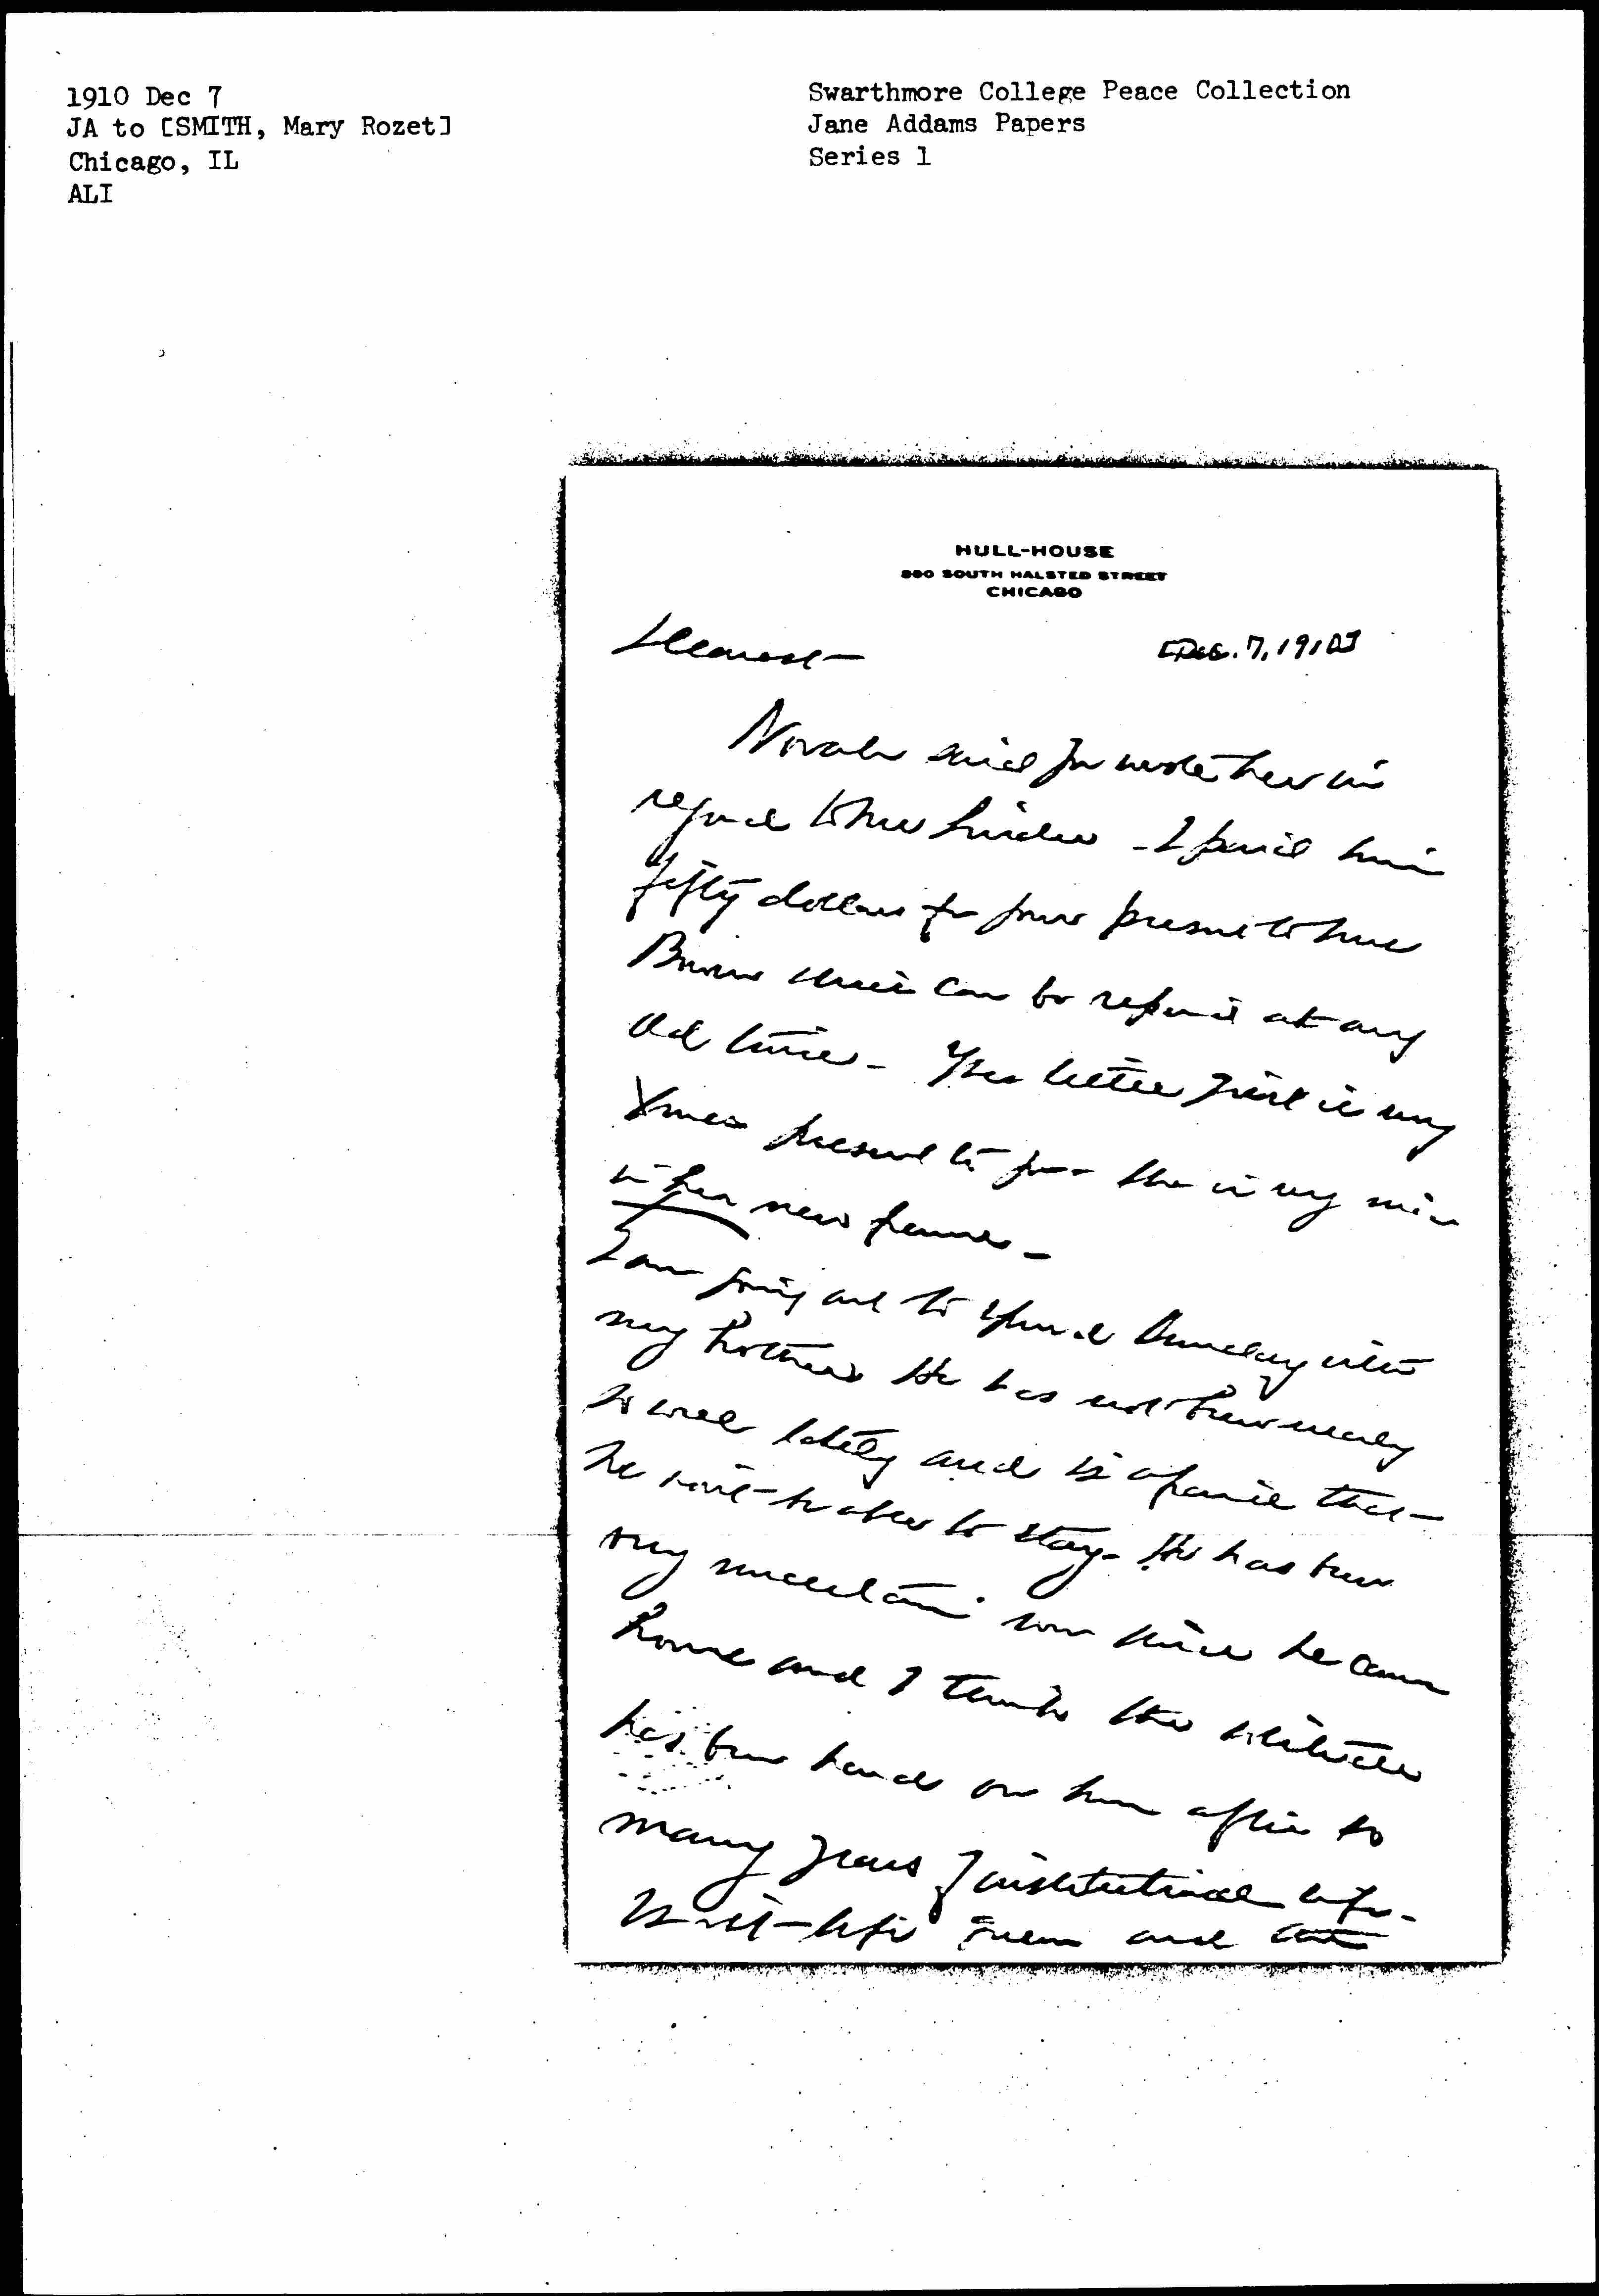 1910 Dec 7
JA to [SMITH, Mary Rozet]
Chicago, IL
ALI
Swarthmore College Peace Collection
Jane Addams Papers
Series 1
HULL-HOUSE
800 SOUTH HALSTED STREET
CHICAGO
Dearest —
[Dec. 7, 1910]
Norah said you wrote her in
regard to her — I paid him
fifty dollars for your present to
can be repaid at any
old time — The little girl is my
Xmas present to you — she is my
in her new frame —
I am going out to spend Sunday with
my brother. He has not been nearly
so well lately and is afraid that
he won't be able to stay — He has been
very uncertain ever since he came
home and I think the
has been hard on him after so
many years of institutional life —
Isn't life and